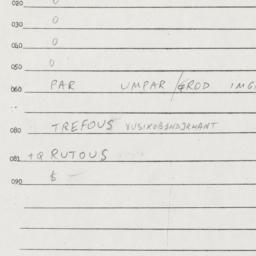 020 0
030 0
040 0
050 0
060 PAR UMPAR / GROD IMG
080 TREFOUS
081 +Q RUTOUS
090 $ -